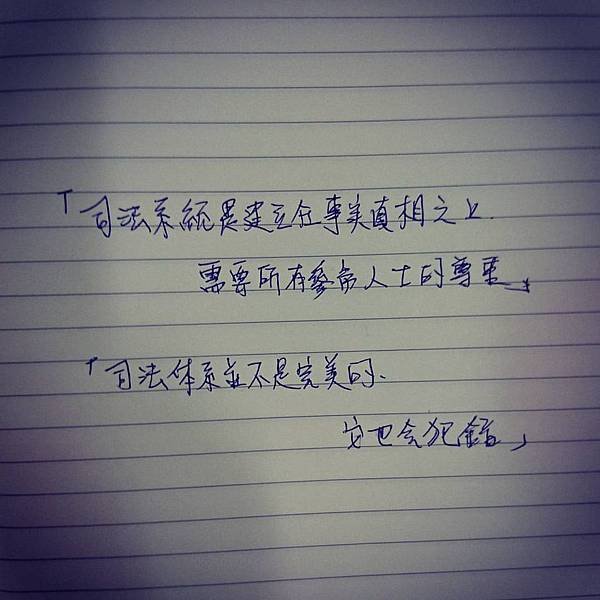 「司法系統是建立在事實真相之上.
需要所有參命人士的尊重」
「司法体系並不是完美的.
它也会犯錯」